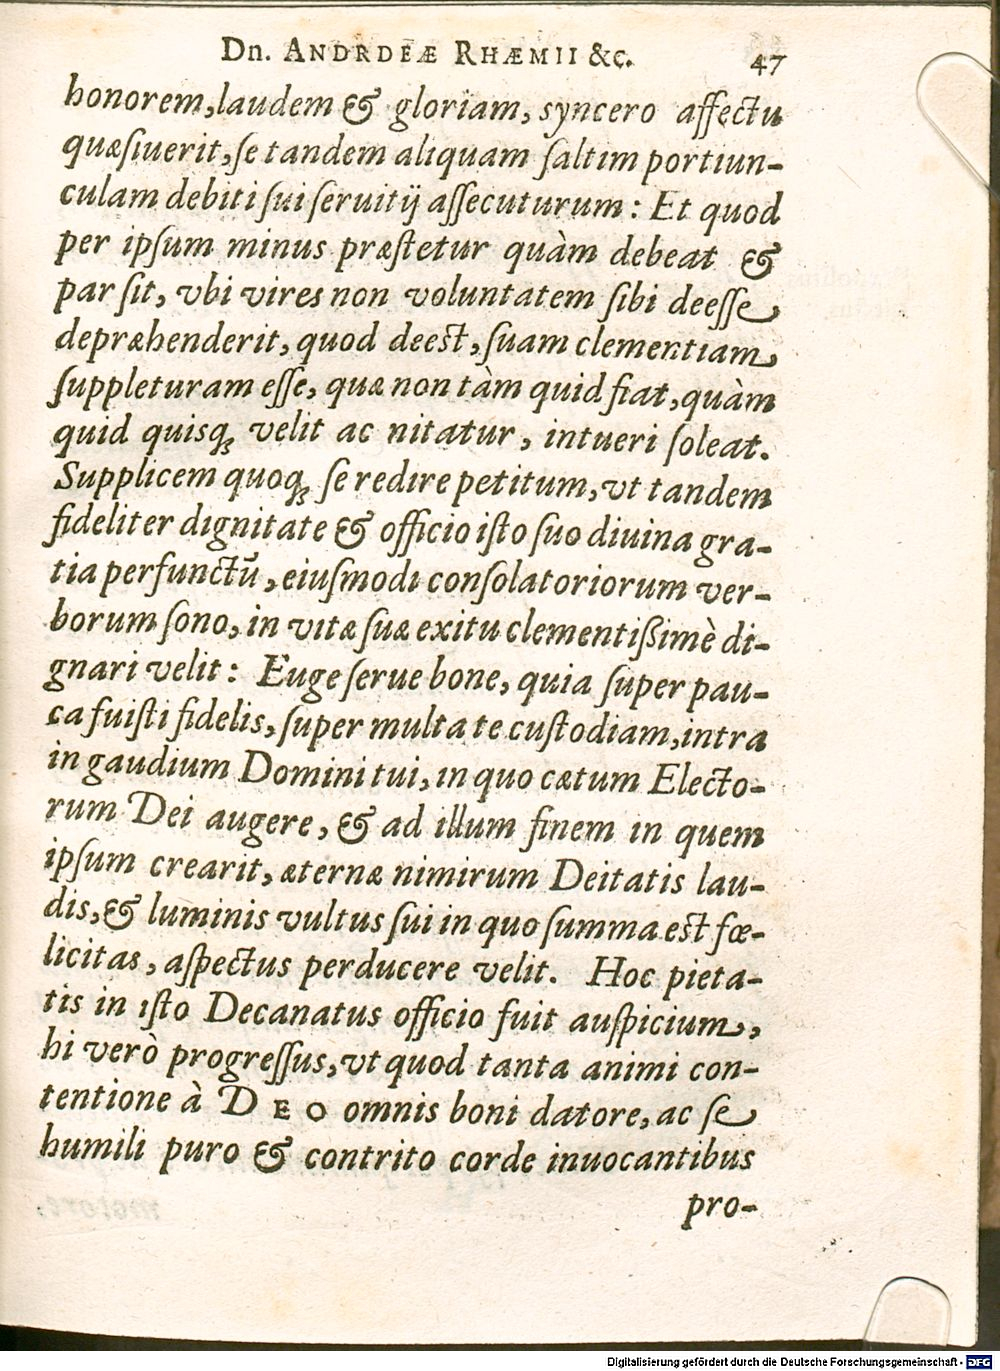 Dn. ANDRDEÆ RHÆMII &c. 47
honorem, laudem & gloriam, syncero affectu
quæsiuerit, se tandem aliquam saltim portiun-
culam debiti sui seruitij assecuturum: Et quod
per ipsum minus præstetur quàm debeat &
par sit, vbi vires non voluntatem sibi deesse
depræhenderit, quod deest, suam clementiam,
suppleturam esse, quæ non tàm quid fiat, quàm
quid quisq; velit ac nitatur, intueri soleat.
Supplicem quoq; se redire petitum, vt tandem
fideliter dignitate & officio isto suo diuina gra-
tia perfunctū, eiusmodi consolatoriorum ver-
borum sono, in vitæ suæ exitu clementißimè di-
gnari velit: Euge serue bone, quia super pau-
ca fuisti fidelis, super multa te custodiam, intra
in gaudium Domini tui, in quo cætum Electo-
rum Dei augere, & ad illum finem in quem
ipsum crearit, æternæ nimirum Deitatis lau-
dis, & luminis vultus sui in quo summa est fœ-
licitas, aspectus perducere velit. Hoc pieta-
tis in isto Decanatus officio fuit auspicium,
hi verò progressus, vt quod tanta animi con-
tentione à DEO omnis boni datore, ac se
humili puro & contrito corde inuocantibus
pro-
Digitalisierung gefördert durch die Deutsche Forschungsgemeinschaft - DFG